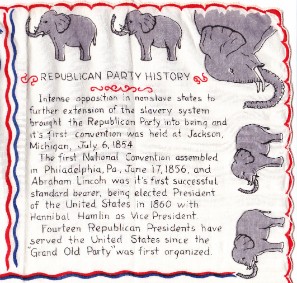 REPUBLICAN PARTY HISTORY
Intense opposition in nonslave states to
further extension of the slavery system
brought the Republican Party into being and
it's first convention was held at Jackson,
Michigan, July 6, 1854
The first National Convention assembled
in Philadelphia, Pa., June 17, 1856, and
Abraham Lincoln was it's first successful
standard bearer, being elected President
of the United States in 1860 with
Hannibal Hamlin as Vice President
Fourteen Republican Presidents have
served the United States since the
"Grand Old Party" was first organized.